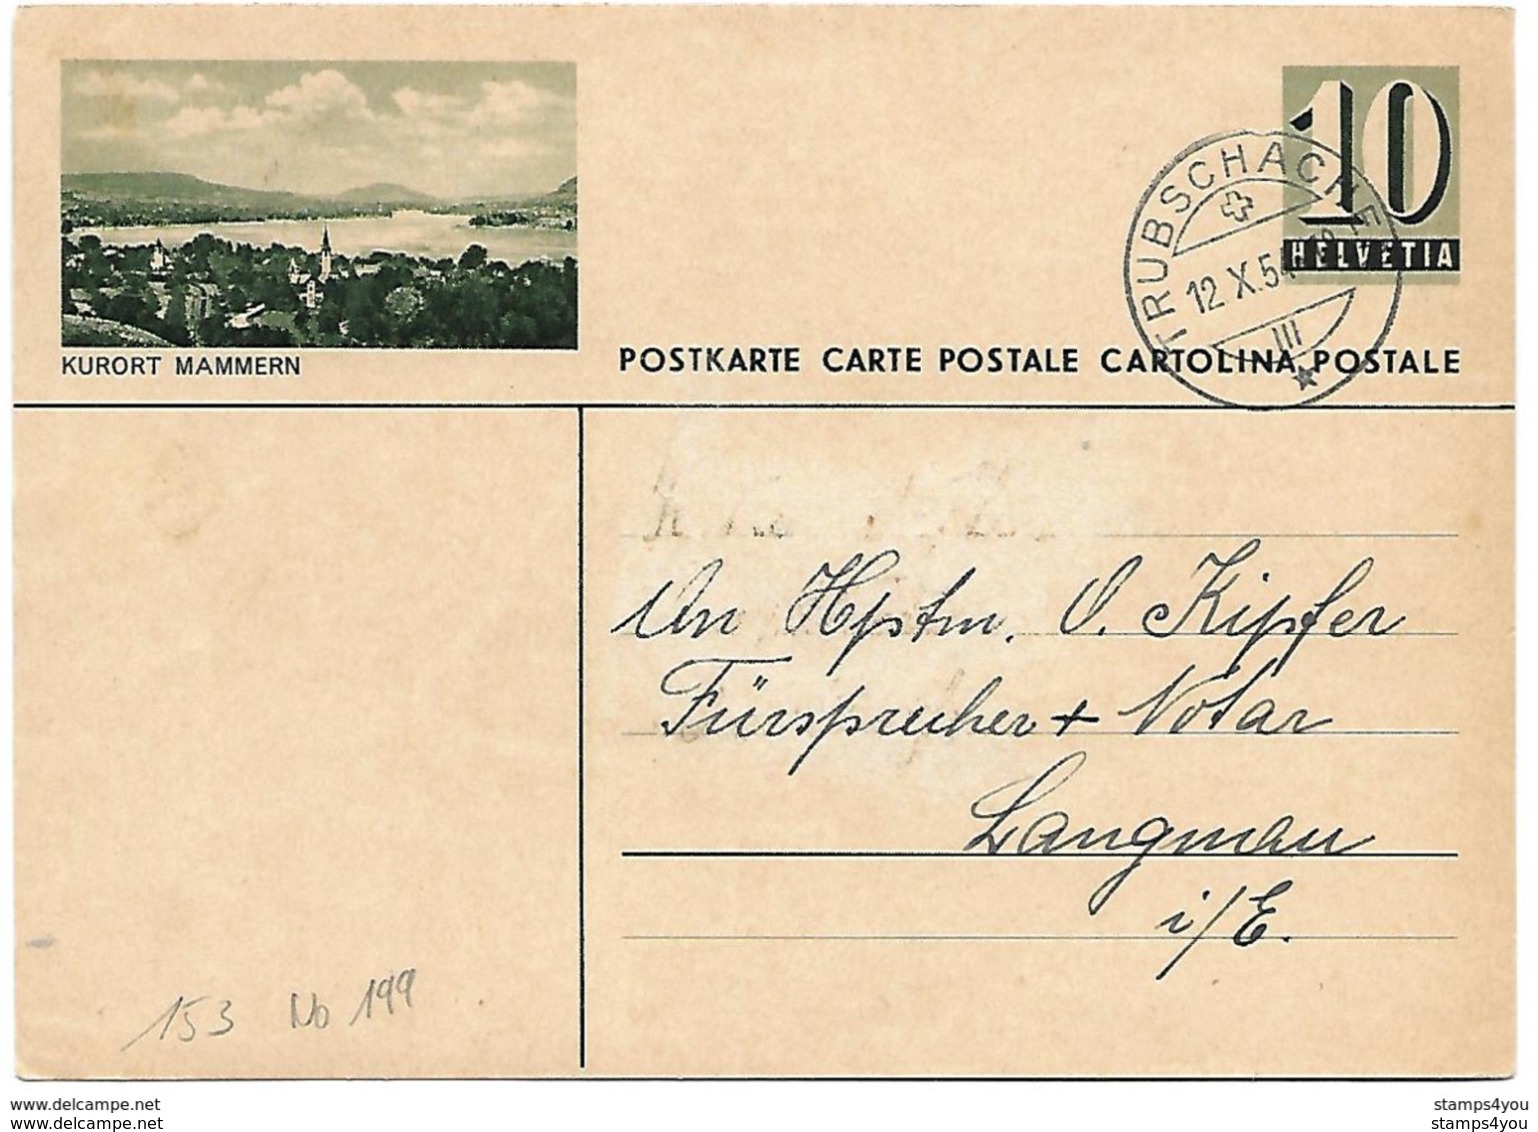 KURORT MAMMERN
10
HELVETIA
TRUBSCHACHEN
12.X.54
III
POSTKARTE CARTE POSTALE CARTOLINA POSTALE
An Hptm. O. Kipfer
Fürsprecher + Notar
Langnau
i/E.
153 No 199
delcampe.net
delcampe.net
stamps4you
stamps4you